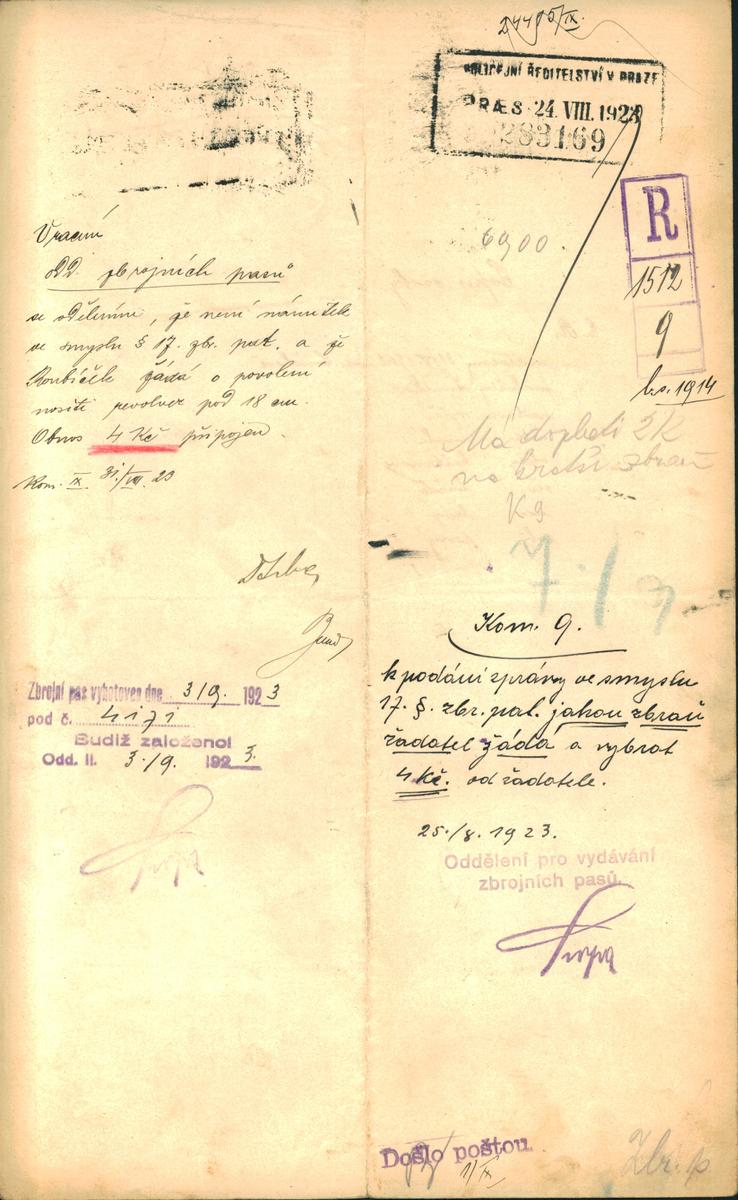 Vrací
odd. zbrojních pasů
se sdělením, že není námitek
ve smyslu § 17. zbr. pat. a že
Roubíček žádá o povolení
nositi revolver pod 18 cm.
Obnos 4 Kč připojen.
Kom. IX 31./VIII. 23
Zbrojní pas vyhotoven dne 3/9. 1923
pod č. 4171
Budiž založeno!
Odd. II. 3./9. 1923.
POLICEJNÍ ŘEDITELSTVÍ V PRAZE
PRÆS 24. VIII. 1923
283169
R
1512
9
6900.
Má doplatit 2 K
na kratší zbraň
K 9
7./9
Kom. 9.
k podání zprávy ve smyslu
17. §. zbr. pat. jakou zbraň
žadatel žádá a vybrat
4 Kč. od žadatele.
25./8. 1923.
Oddělení pro vydávání
zbrojních pasů.
Došlo poštou
1/IX
Zbr. p.